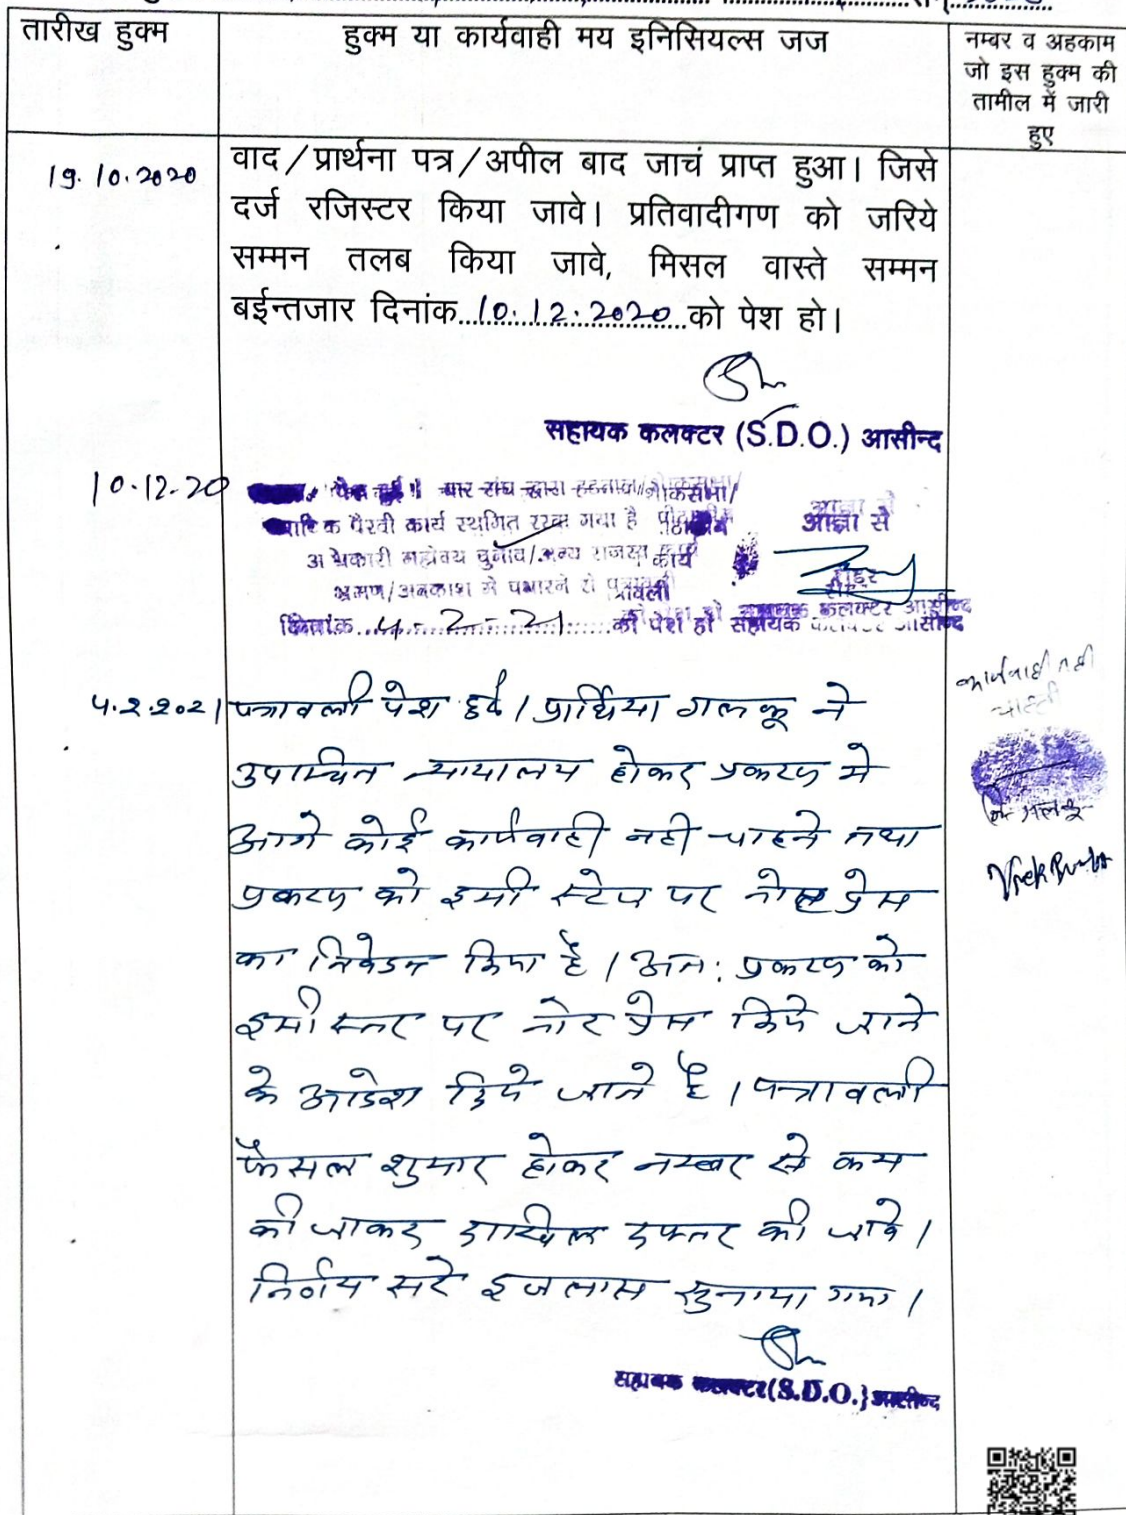 तारीख हुक्म
हुक्म या कार्यवाही मय इनिसियल्स जज
नम्बर व अहकाम
जो इस हुक्म की
तामील में जारी
हुए
19.10.2020
वाद/प्रार्थना पत्र/अपील बाद जाचं प्राप्त हुआ। जिसे
दर्ज रजिस्टर किया जावे। प्रतिवादीगण को जरिये
सम्मन तलब किया जावे, मिसल वास्ते सम्मन
बईन्तजार दिनांक 10.12.2020 को पेश हो।
सहायक कलक्टर (S.D.O.) आसीन्द
10.12.20
पेश हुई। बार संघ द्वारा हड़ताल/शोकसभा/
पैरवी कार्य स्थगित रखा गया है
चुनाव/अन्य राजस्व कार्य
भ्रमण/अवकाश में पधारने से पत्रावली
दिनांक 4-2-21 को पेश हो
आज्ञा से
रीडर
सहायक कलक्टर आसीन्द
4.2.2021
पत्रावली पेश हुई। प्रार्थिया गलकू ने
उपस्थित न्यायालय होकर प्रकरण मे
आगे कोई कार्यवाही नही चाहने तथा
प्रकरण को इसी स्टेज पर नोट प्रेस
का निवेदन किया है। अत: प्रकरण को
इसी स्तर पर नोट प्रेस किये जाने
के आदेश दिये जाते है। पत्रावली
फैसल शुमार होकर नम्बर से कम
की जाकर दाखिल दफ्तर की जावे।
निर्णय सरे इजलास सुनाया गया।
सहायक कलक्टर (S.D.O.) आसीन्द
कार्यवाही नही
चाहती
गलकू